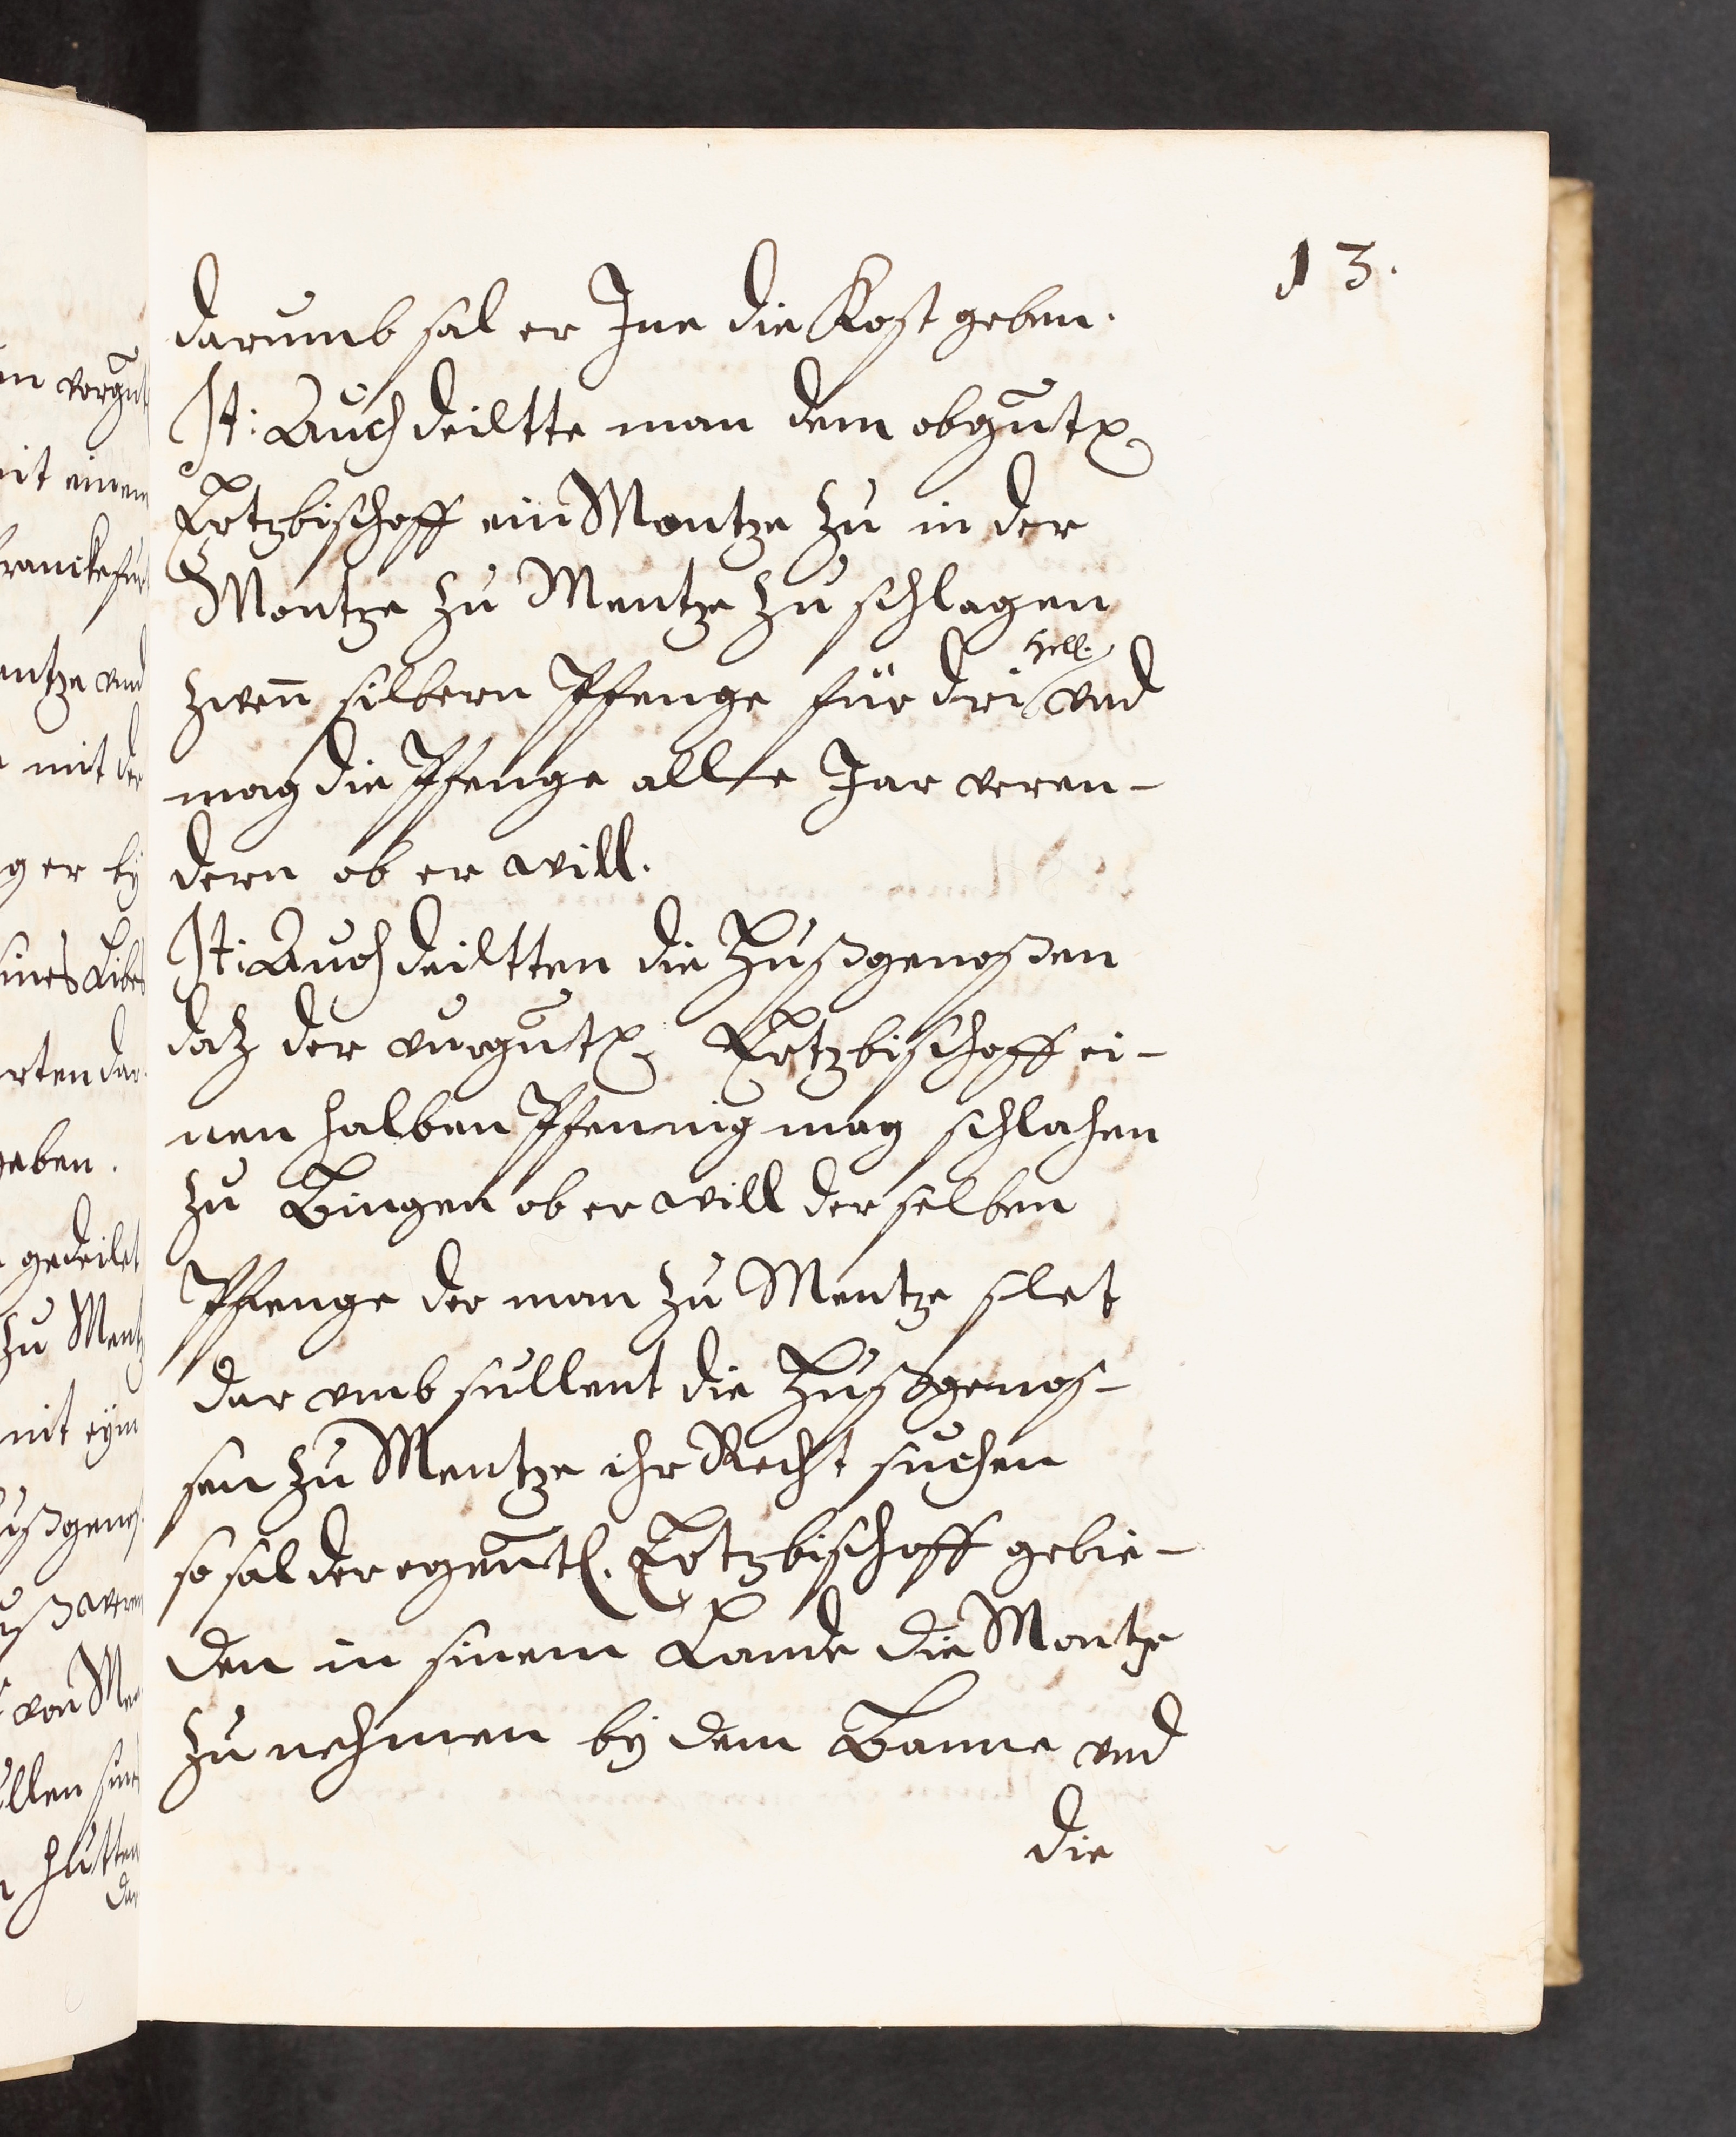 13.
darumb sal er Ine die Kost geben.
It: Auch deiltte man dem obgūt
Ertzbischoff ein Montze zu in der
Montze zu Mentze zu schlagen
Hell.
zwen̄ silbern Pfenge für dri und
mag die Pfenge alle Jar veren-
dern ob er will.
It: Auch deiltten die Hußgenoßen
daz der vurgūt Ertzbischoff ei-
nen halben Pfennig mag schlahen
zu Bingen ob er will der selben
Pfenge der man zu Mentze slet
dar vmb sullent die Hußgenos-
sen zu Mentze ihr Recht suchen
so sal der egen̄t. Ertzbischoff gebie-
den in sinem Lande die Montze
zu nehmen bÿ dem Banne vnd
die